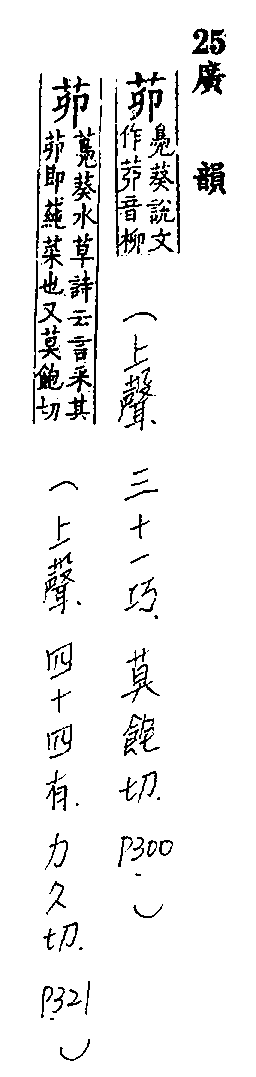 25廣韻
茆 鳧葵說文作茆音柳 (上聲. 三十一巧. 莫飽切. P300.)
茆 鳧葵水草詩云言采其茆即蓴菜也又莫飽切 (上聲. 四十四有. 力久切. P321.)